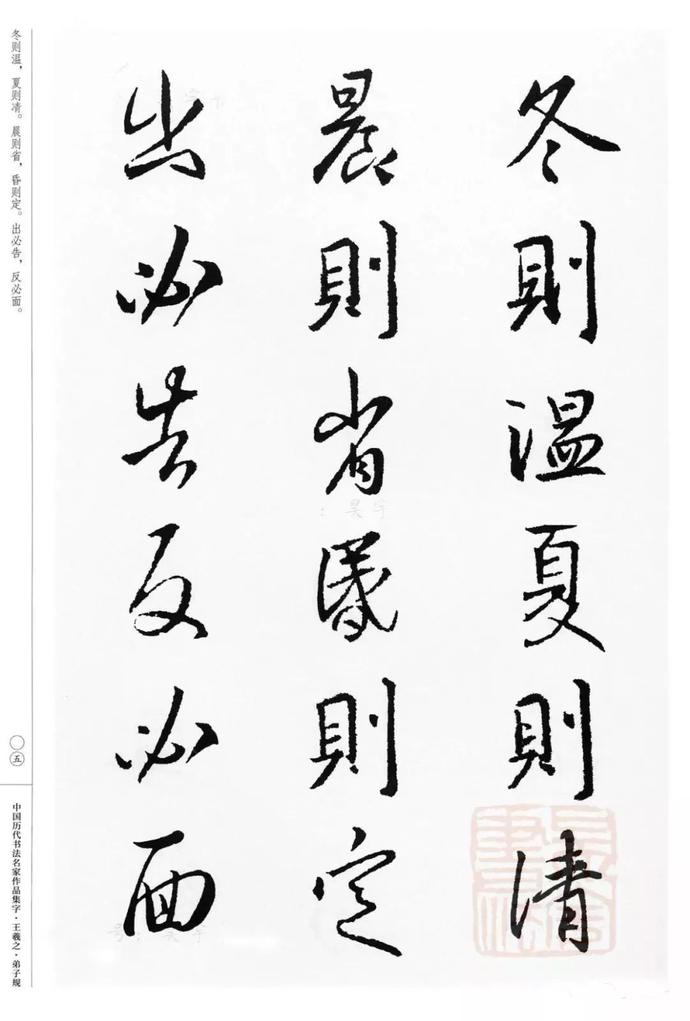 冬則温夏則清
晨則省昏則定
出必告反必面
冬则温，夏则凊。晨则省，昏则定。出必告，反必面。
〇五
中国历代书法名家作品集字·王羲之·弟子规